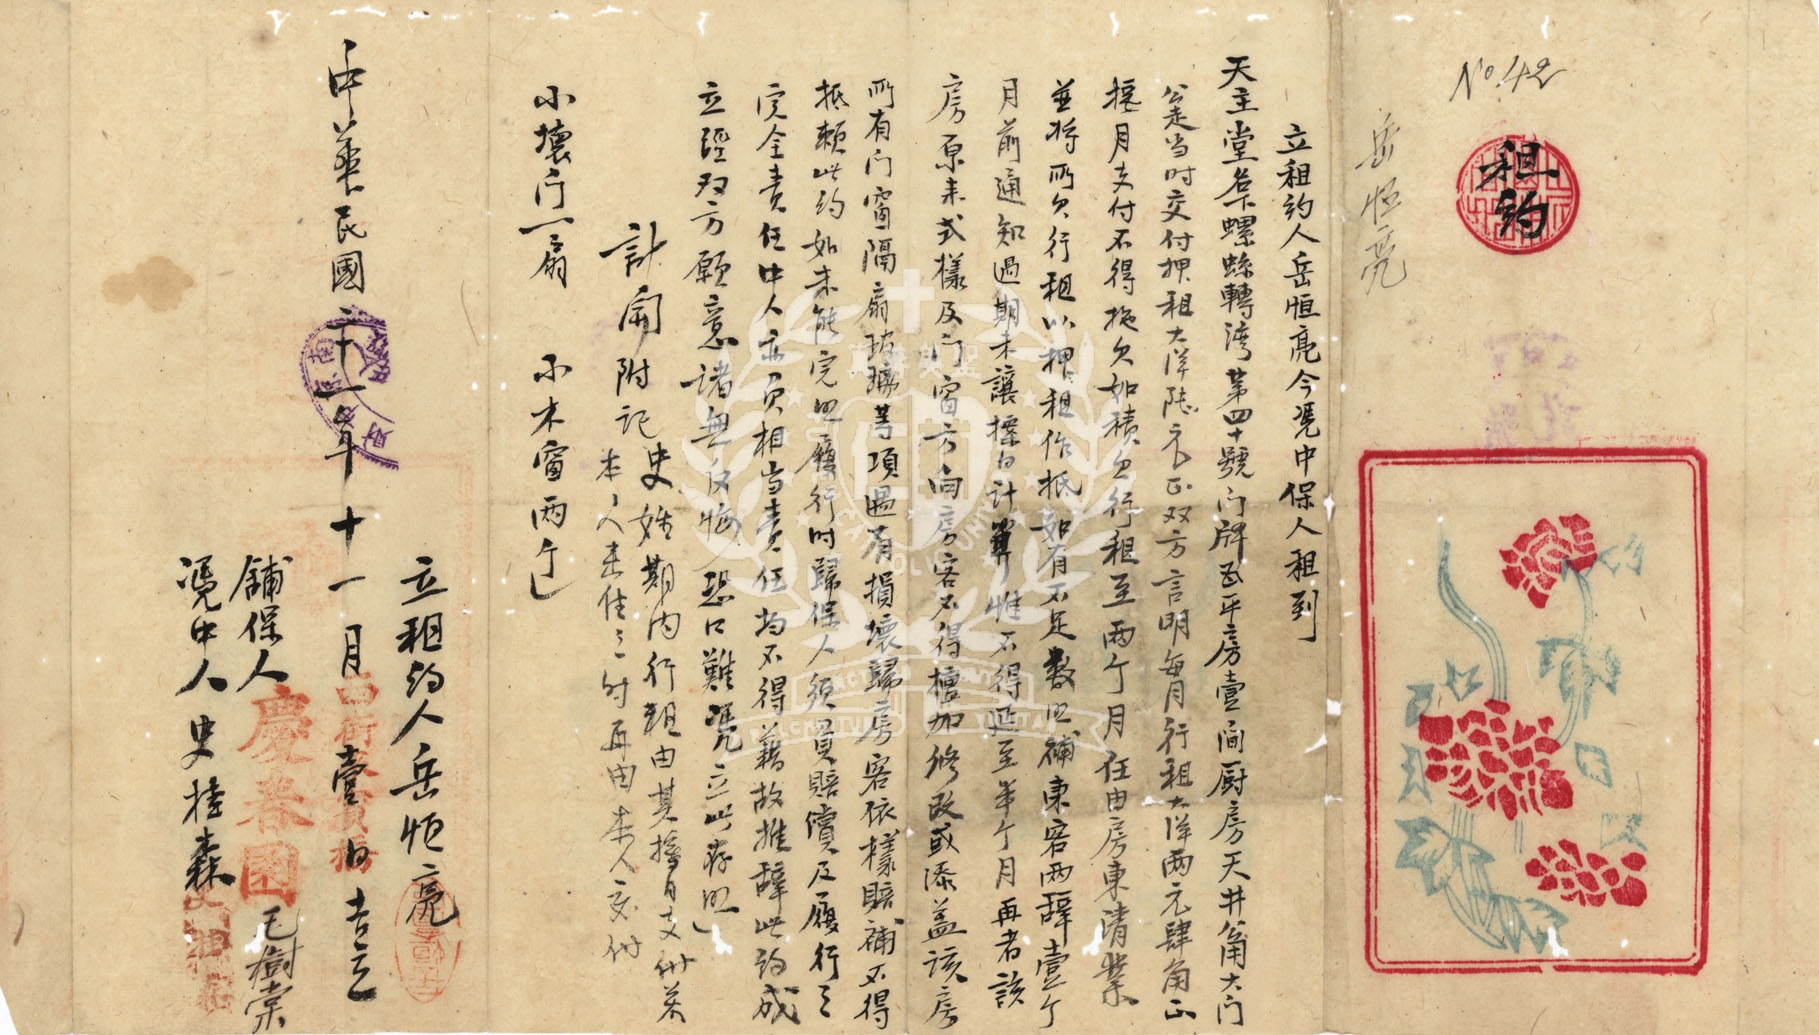 No.42
租約
岳恒亮
立租約人岳恒亮今憑中保人租到
天主堂名下螺螄轉灣第四十號門牌瓦平房壹間厨房天井公用大門
公走当时交付押租大洋陸元正双方言明每月行租大洋两元肆角正
按月支付不得拖欠如積欠行租至两个月任由房東清業
並将所欠行租以押租作抵如有不足数照補東客两辞壹个
月前通知過期未讓擇日計算惟不得延至半个月再者該
房原来式樣及門窗方向房客不得擅加修改或添蓋該房
所有门窗隔扇玻璃等項遇有損壞歸房客依樣賠補不得
抵賴此約如未能完照履行时歸保人須負賠償及履行之
完全責任中人亦负相当責任均不得藉故推辞此约成
立經双方願意諸無反悔恐口難憑立此存照
計開附记史姓期内行租由其按月支付若
本人未住之时再由本人交付
小壞门一扇 小木窗两个
中華民國二十一年十一月壹日吉立
立租约人岳恒亮
舖保人 慶春園 毛樹棠
憑中人史桂森